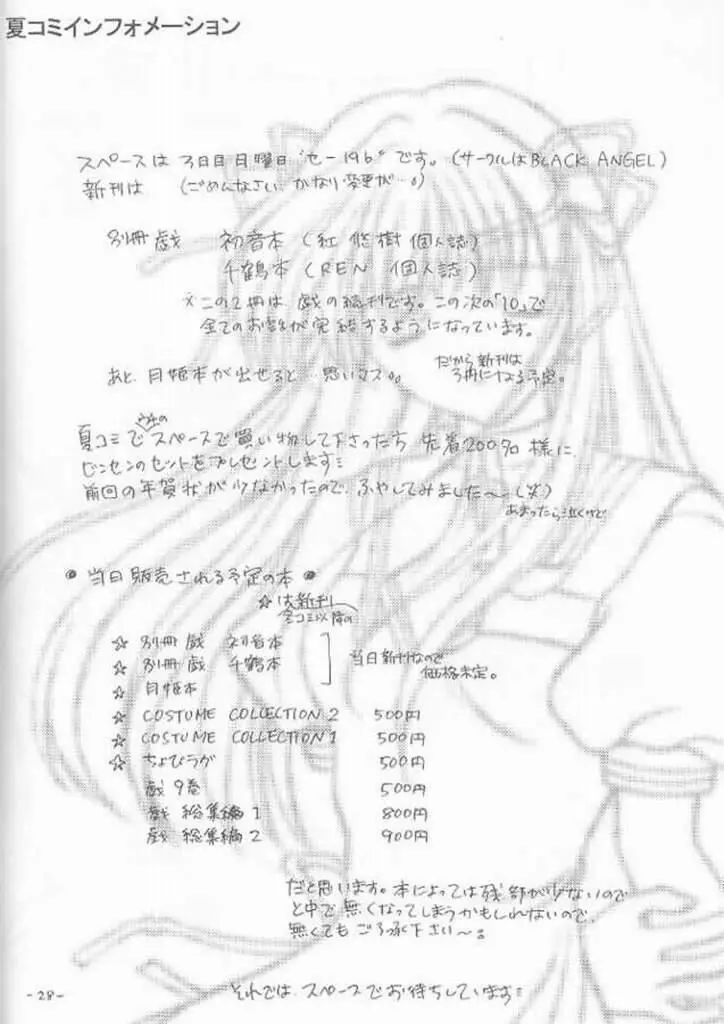 夏コミインフォメーション
スペースは3日目日曜日"セー19b"です。(サークルはBLACK ANGEL)
新刊は (ごめんなさい、かなり変更が…。)
別冊 戯 初音本 (紅 悠樹 個人誌)
千鶴本 (REN 個人誌)
※この2冊は戯の続刊です。この次の「10」で
全てのお話が完結するようになっています。
あと、月姫本が出せると…思いマス。。
だから新刊は
3冊になる予定。
ウチの
夏コミでスペースで買い物して下さった方 先着200名様に
ビンセンのセットをプレゼントします
前回の年賀状が少なかったので、ふやしてみました〜(笑)
あまったら泣くけど
● 当日販売される予定の本 ●
☆は新刊
冬コミ以降の
☆ 別冊 戯 初音本
☆ 別冊 戯 千鶴本
☆ 月姫本
当日新刊なので
価格未定。
☆ COSTUME COLLECTION 2 500円
☆ COSTUME COLLECTION 1 500円
☆ ちょびラグ 500円
戯 9巻 500円
戯 総集編 1 800円
戯 総集編 2 900円
だと思います。本によっては残部が少ないので
と中で無くなってしまうかもしれないので、
無くてもごろ承下さい〜。
それでは、スペースでお待ちしています
-28-